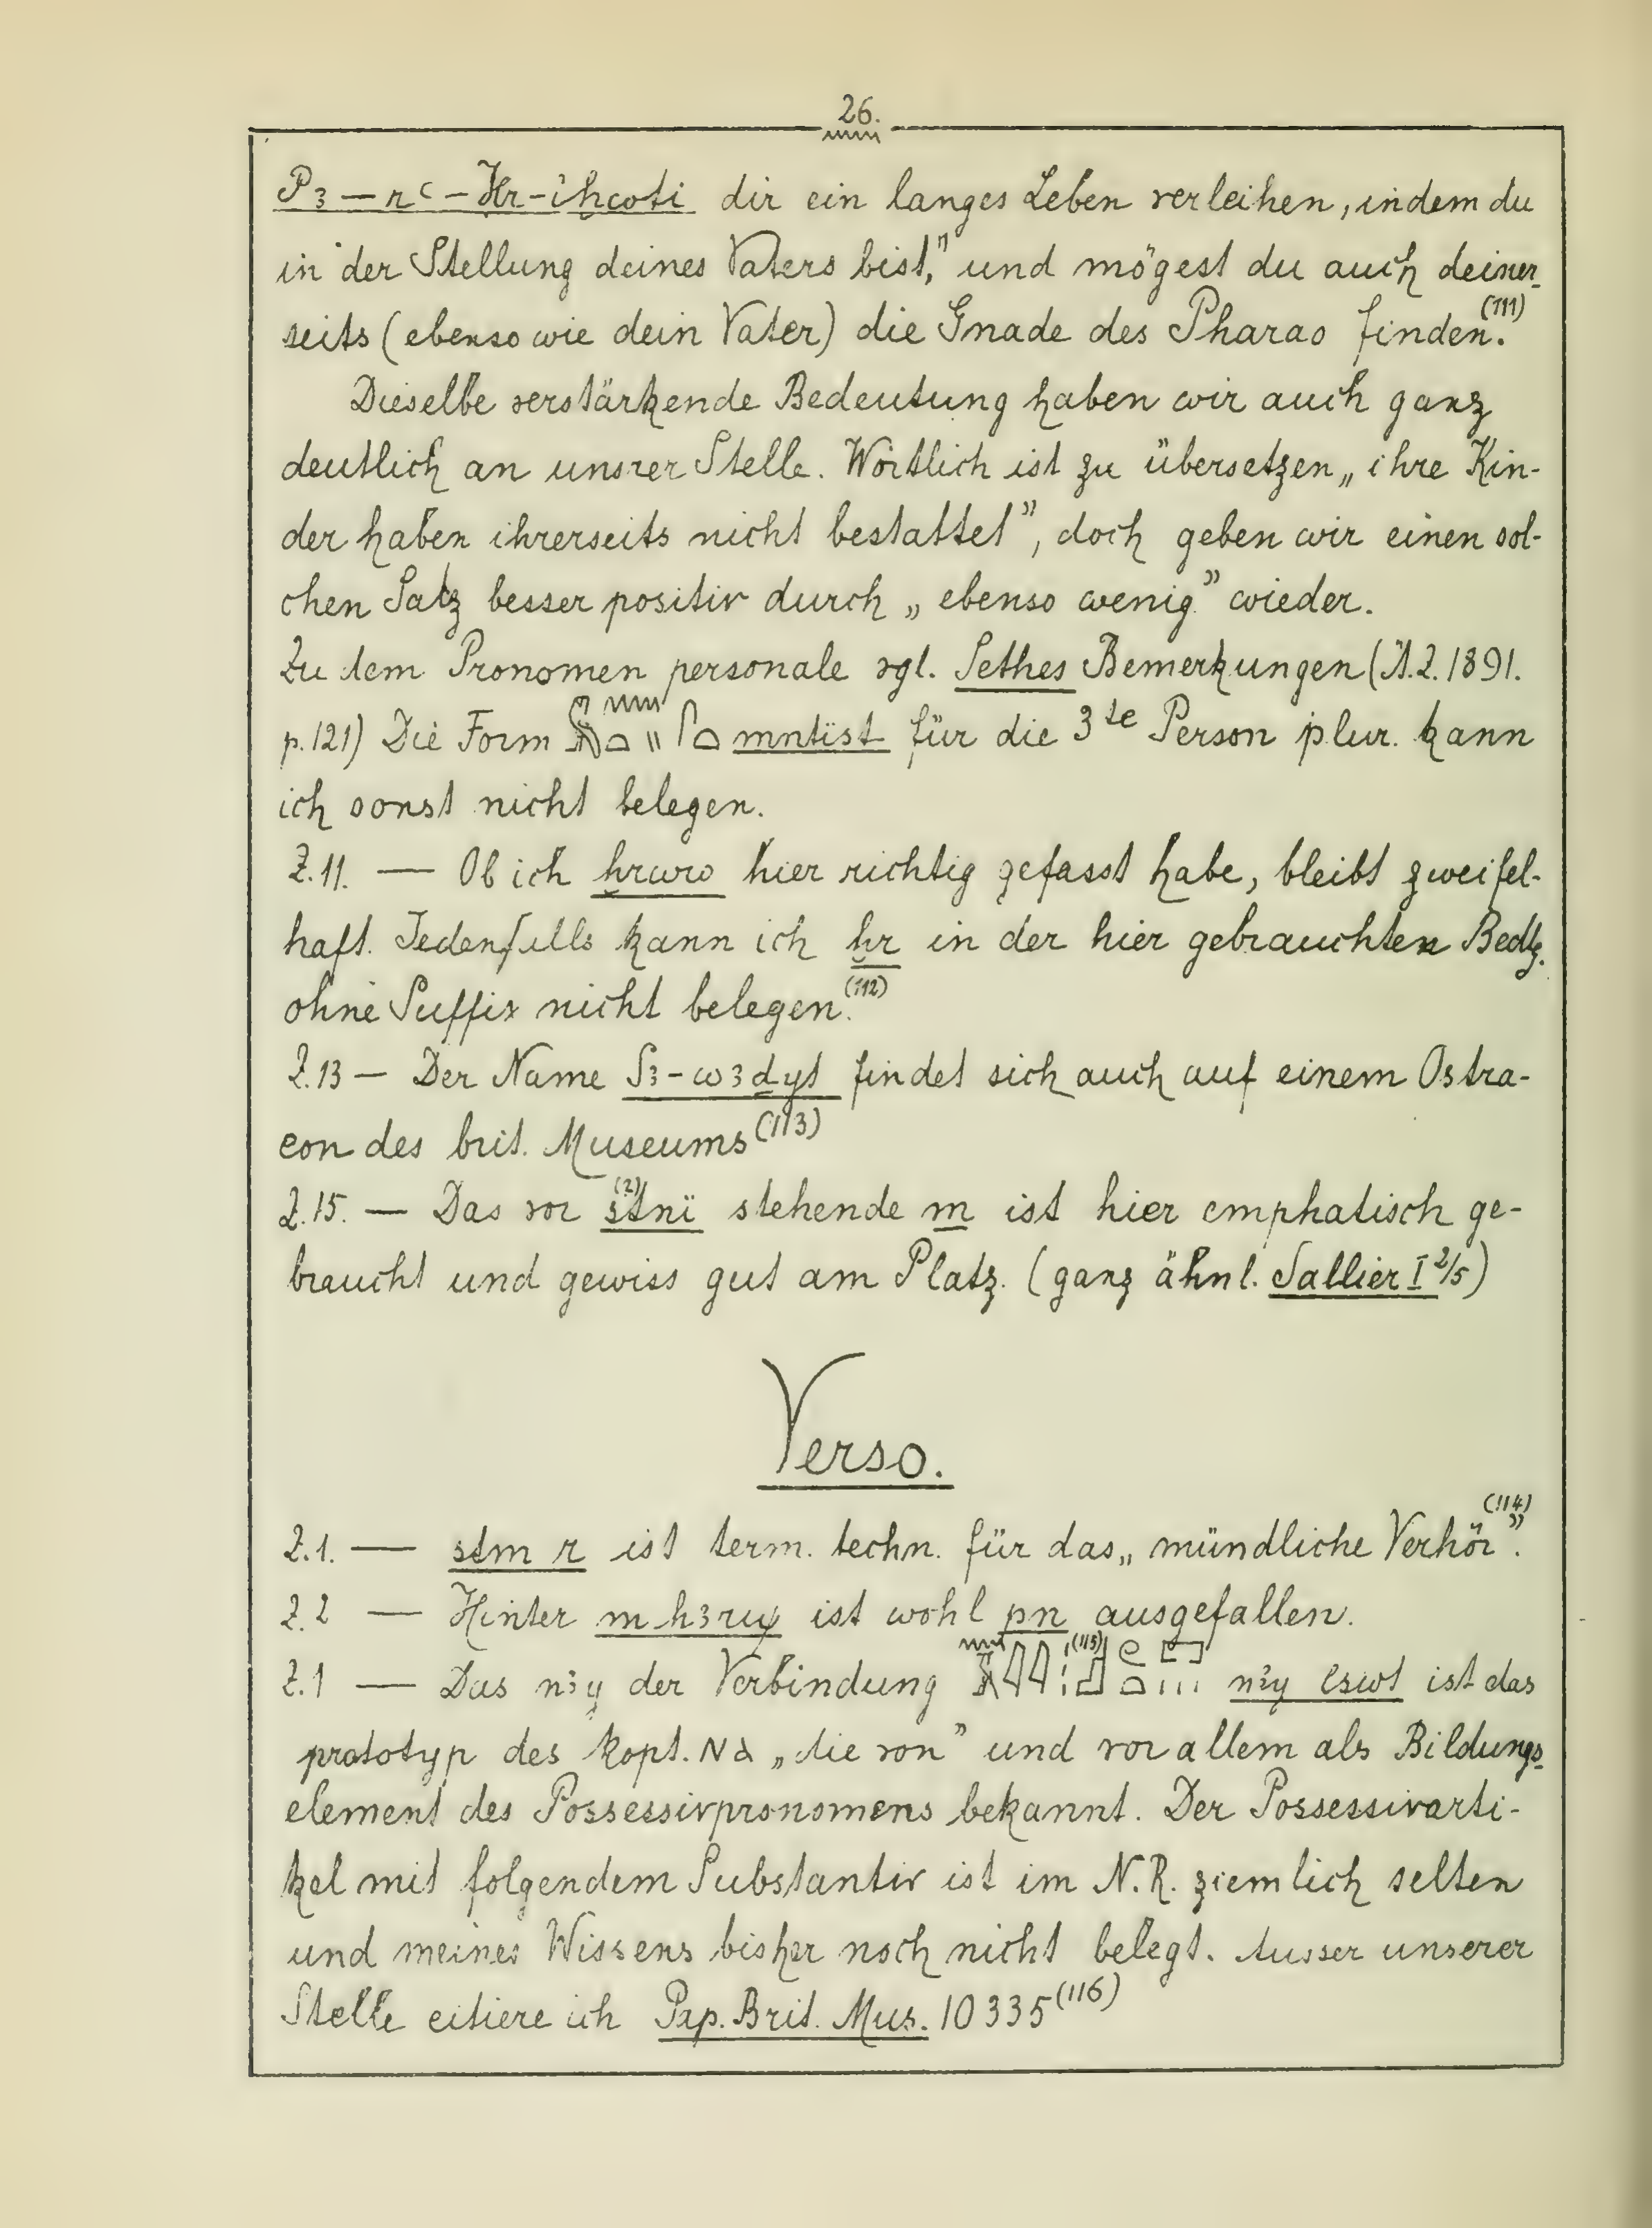 26.
P3 – rꜥ – Ḥr-iḫwti dir ein langes Leben verleihen, indem du
in der Stellung deines Vaters bist," und mögest du auch deiner-
seits (ebenso wie dein Vater) die Gnade des Pharao finden.(111)
Dieselbe verstärkende Bedeutung haben wir auch ganz
deutlich an unsrer Stelle. Wörtlich ist zu übersetzen „ihre Kin-
der haben ihrerseits nicht bestattet", doch geben wir einen sol-
chen Satz besser positiv durch „ebenso wenig" wieder.
Zu dem Pronomen personale vgl. Sethes Bemerkungen (Ä.Z. 1891.
p. 121) Die Form mntïst für die 3te Person plur. kann
ich sonst nicht belegen.
Z. 11. — Ob ich ḫrwro hier richtig gefasst habe, bleibt zweifel-
haft. Jedenfalls kann ich ḫr in der hier gebrauchten Bedtg.
ohne Suffix nicht belegen.(112)
Z. 13 — Der Name S3-w3ḏyt findet sich auch auf einem Ostra-
con des brit. Museums(113)
Z. 15. — Das vor sṯnï (?) stehende m ist hier emphatisch ge-
braucht und gewiss gut am Platz. (ganz ähnl. Sallier I 2/5)
Verso.
Z. 1. — sdm r ist term. techn. für das „mündliche Verhör".(114)
Z. 2 — Hinter m h3ruy ist wohl pn ausgefallen.
Z. 1 — Das n3y der Verbindung (115) n3y iswt ist das
prototyp des kopt. ⲚⲀ „die von" und vor allem als Bildungs-
element des Possessivpronomens bekannt. Der Possessivarti-
kel mit folgendem Substantiv ist im N.R. ziemlich selten
und meines Wissens bisher noch nicht belegt. Ausser unserer
Stelle citiere ich Pap. Brit. Mus. 10335(116)